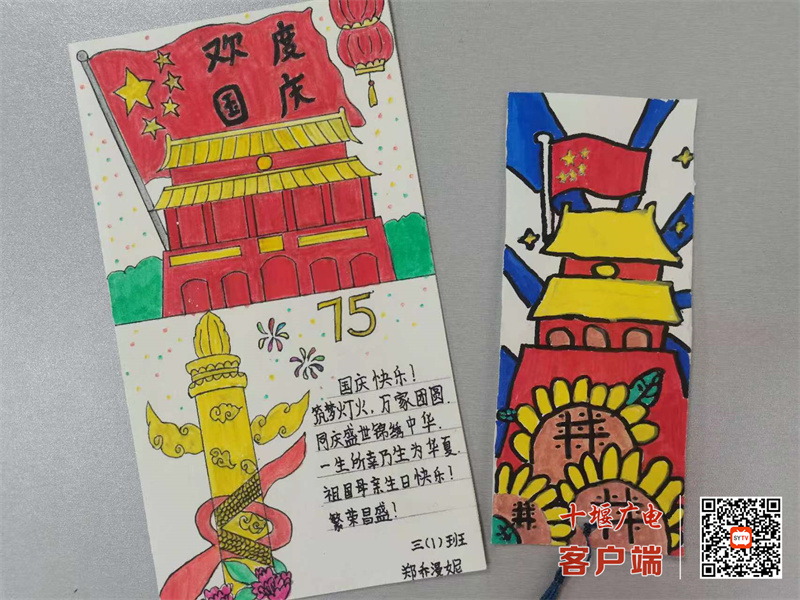 欢度
国庆
75
国庆快乐!
筑梦灯火,万家团圆.
同庆盛世锦绣中华.
一生所幸乃生为华夏.
祖国母亲生日快乐!
繁荣昌盛!
三(1)班
郑乔漫妮
十堰广电
客户端
SYTV